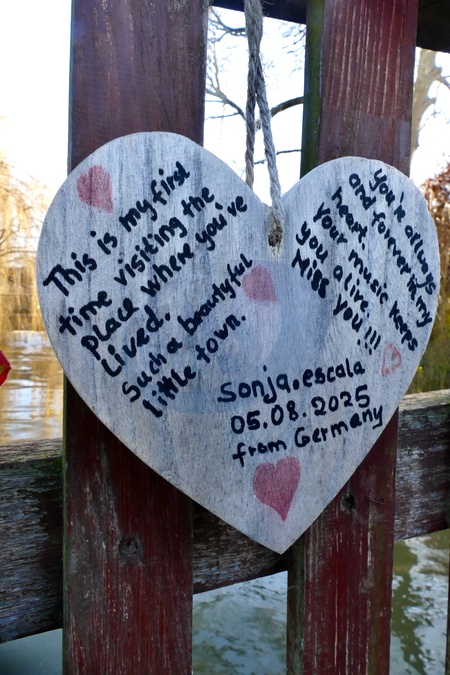 This is my first
time visiting the
place where you've
Lived.
Such a beautyful
little town.
you're always
and forever in my
heart.
Your music keeps
you alive.
Miss you!!!
sonja.escala
05.08.2025
from Germany